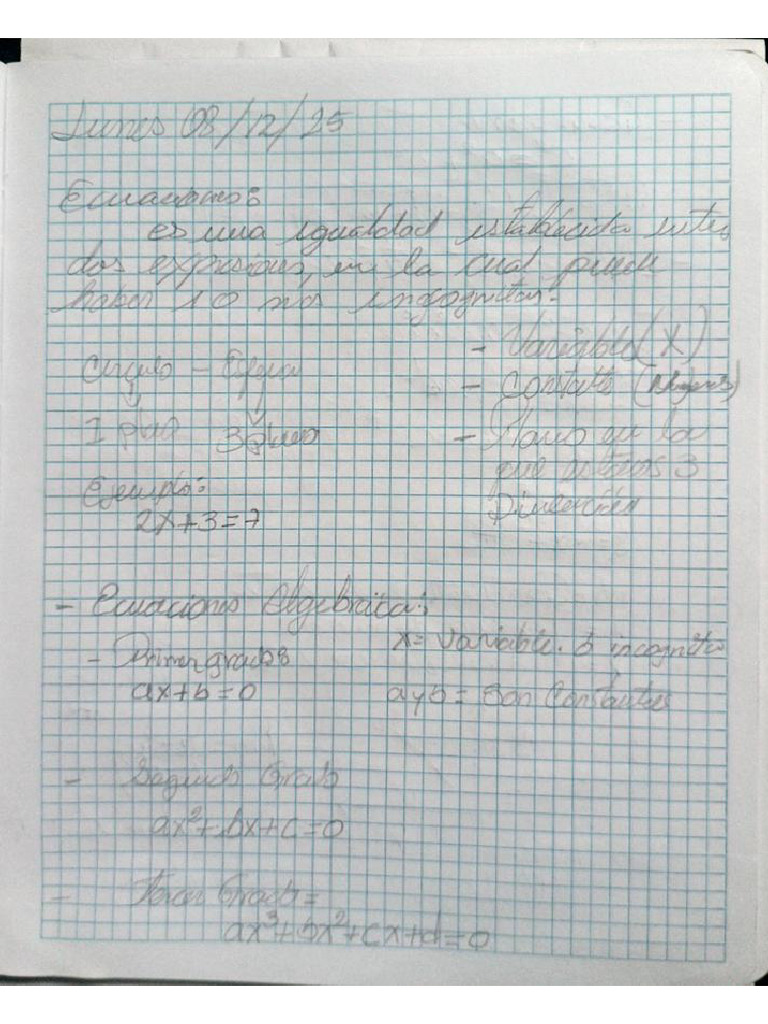 Lunes 08/12/25
Ecuaciones:
es una igualdad establecida entre
dos expresiones, en la cual puede
haber 1 o más incognitas.
- Variable (X)
Circulo - Esfera
- Constate
1 plano 3 planos
- Plano en la
que 3
Ejemplo:
Dimención
2x+3=7
- Ecuaciones Algebraica:
- Primer grado:
x= variable. ó incognita
ax+b=0
a y b = Son Constantes
- Segundo Grado
ax²+bx+c=0
- Tercer Grado=
ax³+bx²+cx+d=0